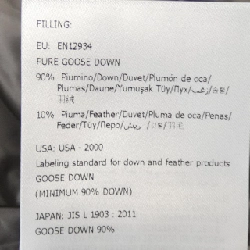 FILLING:
EU: EN12934
PURE GOOSE DOWN
90% Piumino/Down/Duvet/Plumón de oca/
Plumes/Daune/Yumuşak Tüy/Пух/
10% Piuma/Feather/Duvet/Pluma de oca/Penas/
Feder/Tüy/Перо/ريش/
USA: USA - 2000
Labeling standard for down and feather products
GOOSE DOWN
(MINIMUM 90% DOWN)
JAPAN: JIS L 1903 : 2011
GOOSE DOWN 90%